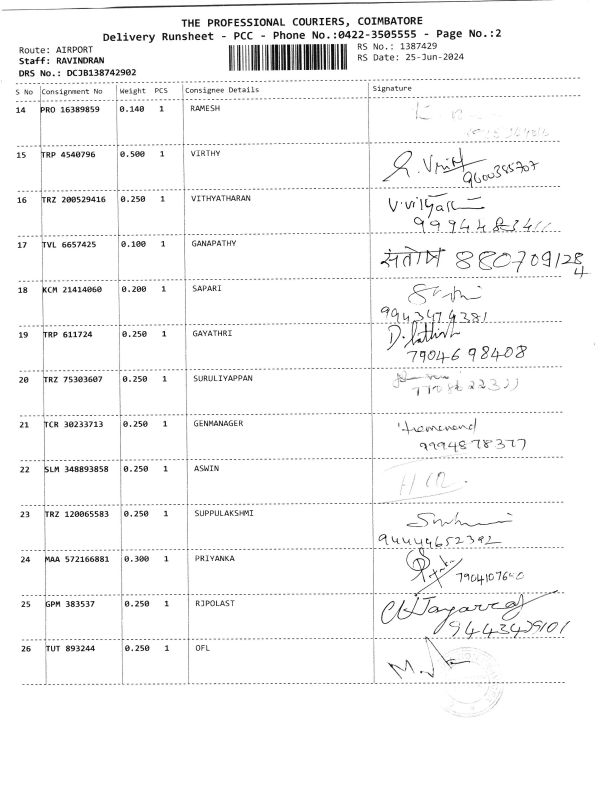 THE PROFESSIONAL COURIERS, COIMBATORE
Delivery Runsheet - PCC - Phone No.:0422-3505555 - Page No.:2
Route: AIRPORT RS No.: 1387429
Staff: RAVINDRAN RS Date: 25-Jun-2024
DRS No.: DCJB138742902
S No Consignment No Weight PCS Consignee Details Signature
14 PRO 16389859 0.140 1 RAMESH
15 TRP 4540796 0.500 1 VIRTHY
9600385707
16 TRZ 200529416 0.250 1 VITHYATHARAN
17 TVL 6657425 0.100 1 GANAPATHY संतोष 8807091284
18 KCM 21414060 0.200 1 SAPARI
9943474381
19 TRP 611724 0.250 1 GAYATHRI
7904698408
20 TRZ 75303607 0.250 1 SURULIYAPPAN
21 TCR 30233713 0.250 1 GENMANAGER
9994878377
22 SLM 348893858 0.250 1 ASWIN
23 TRZ 120065583 0.250 1 SUPPULAKSHMI
24 MAA 572166881 0.300 1 PRIYANKA
25 GPM 383537 0.250 1 RJPOLAST
26 TUT 893244 0.250 1 OFL